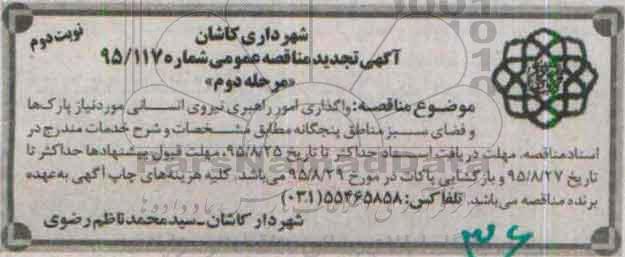 شهرداری کاشان
نوبت دوم
آگهی تجدید مناقصه عمومی شماره ۹۵/۱۱۷
«مرحله دوم»
موضوع مناقصه: واگذاری امور راهبری نیروی انسانی مورد نیاز پارک‌ها
و فضای سبز مناطق پنجگانه مطابق مشخصات و شرح خدمات مندرج در
اسناد مناقصه. مهلت دریافت اسناد حداکثر تا تاریخ ۹۵/۸/۲۵، مهلت قبول پیشنهادها حداکثر تا
تاریخ ۹۵/۸/۲۷ و بازگشایی پاکات در مورخ ۹۵/۸/۲۹ می‌باشد. کلیه هزینه‌های چاپ آگهی به عهده
برنده مناقصه می‌باشد. تلفاکس: ۵۵۴۶۵۸۵۸(۰۳۱)
شهردار کاشان ـ سید محمد ناظم رضوی
۳۶
ParsNamadData